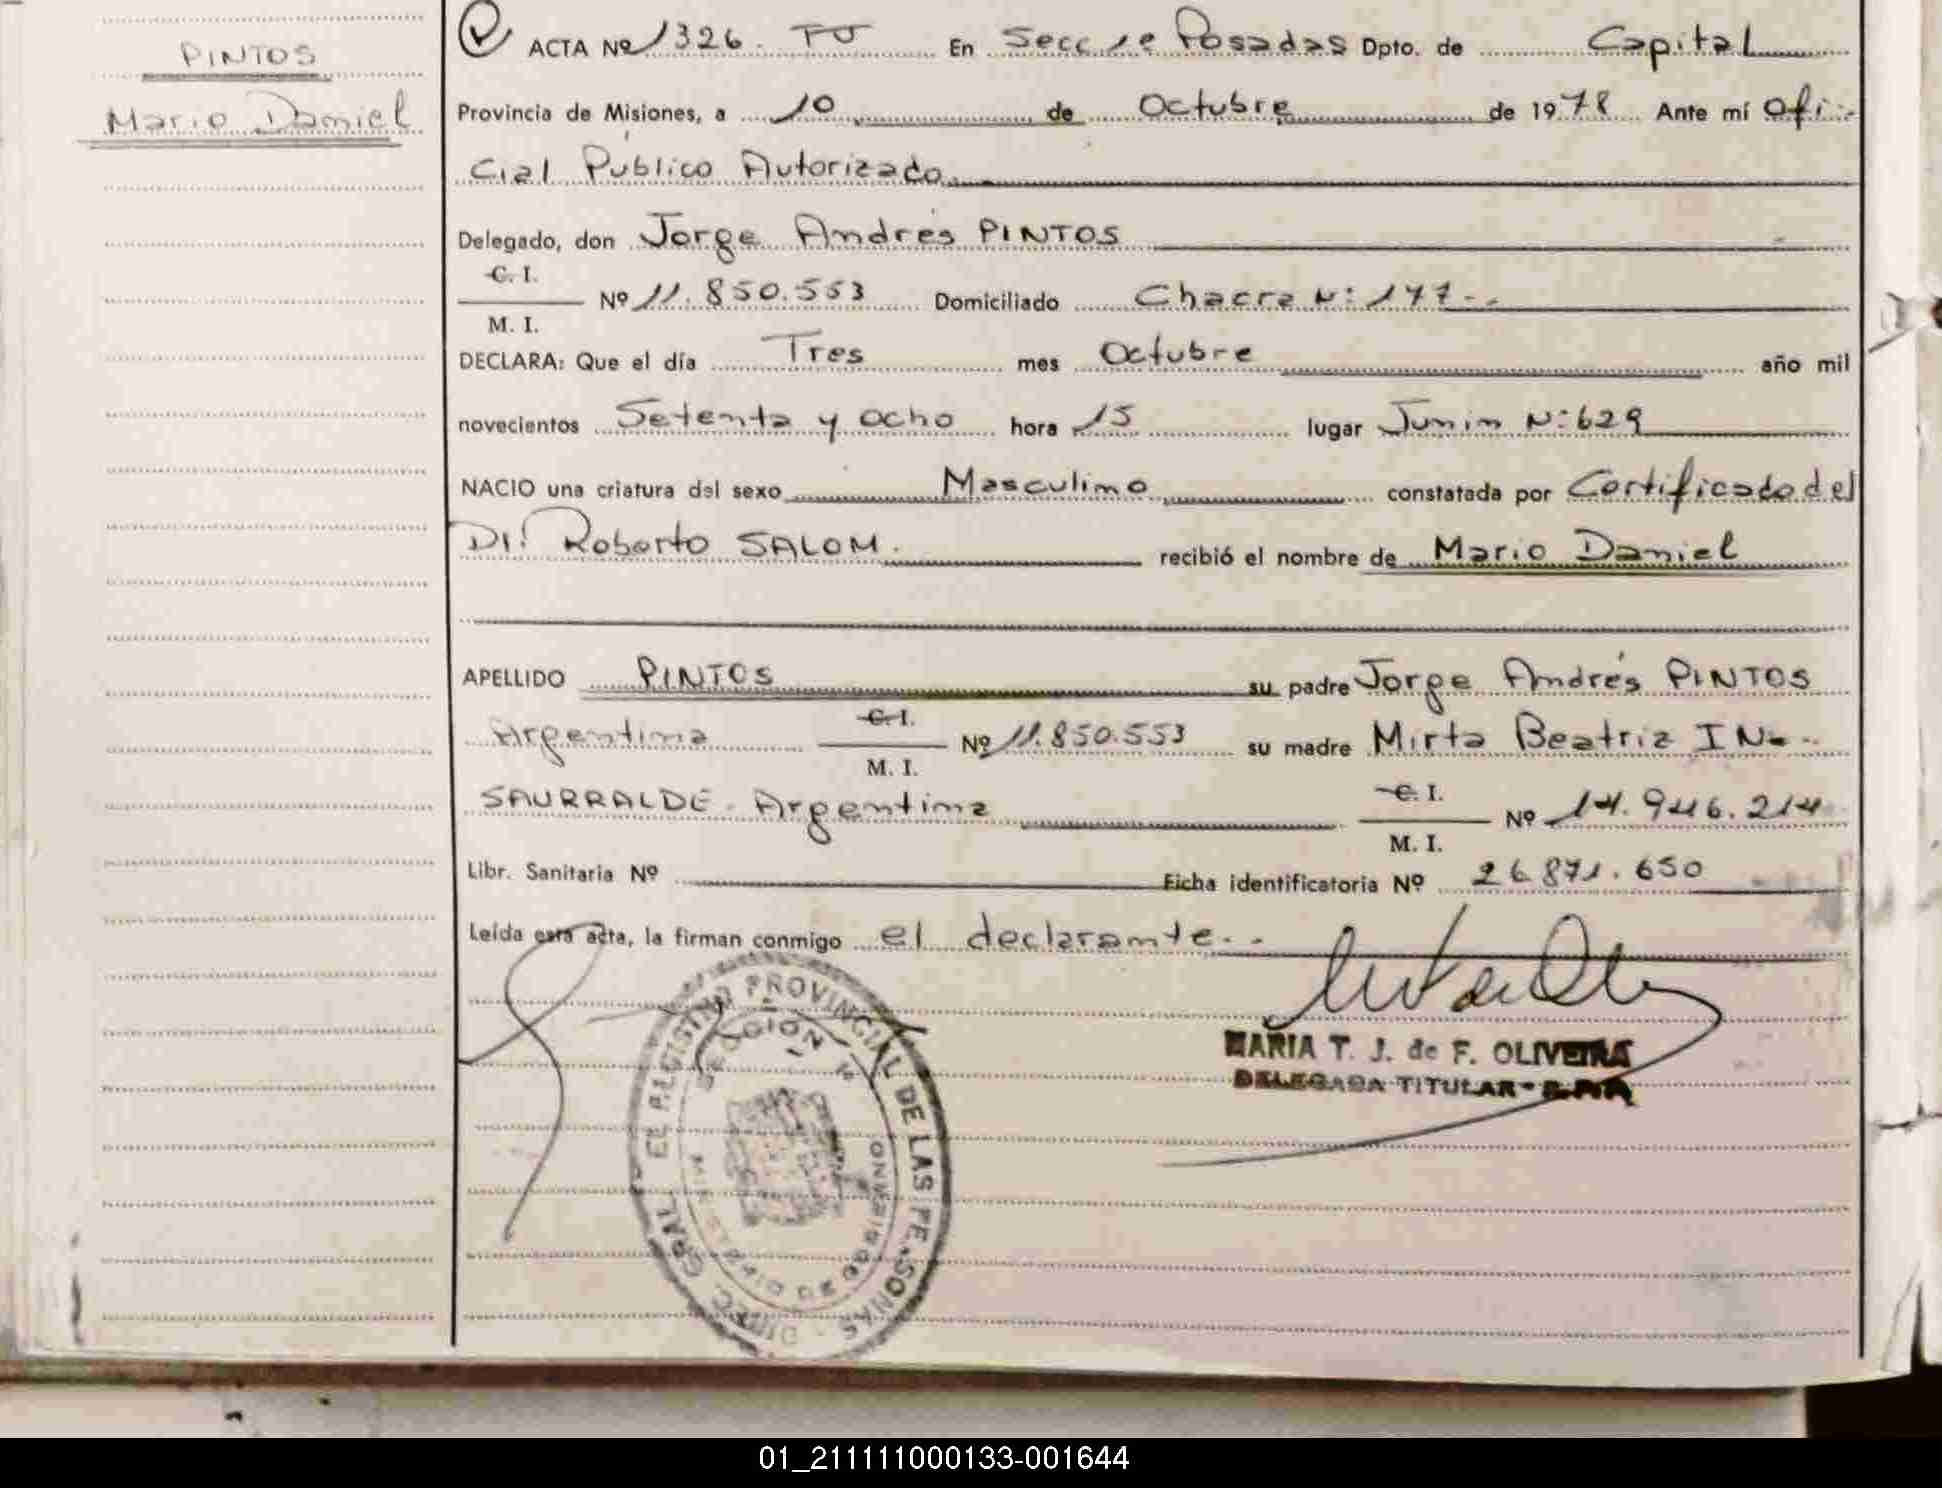 PINTOS
Mario Daniel
ACTA Nº 1326. TU En Secc 1e Posadas Dpto. de Capital
Provincia de Misiones, a 10 de Octubre de 1978 Ante mí Ofi-
cial Público Autorizado
Delegado, don Jorge Andrés PINTOS
C. I.
Nº 11.850.553 Domiciliado Chacra Nº 177--
M. I.
DECLARA: Que el día Tres mes Octubre año mil
novecientos Setenta y ocho hora 15 lugar Junin Nº 629
NACIO una criatura del sexo Masculino constatada por Certificado del
Dr. Roberto SALOM. recibió el nombre de Mario Daniel
APELLIDO PINTOS su padre Jorge Andrés PINTOS
Argentina C. I. Nº 11.850.553 su madre Mirta Beatriz IN--
M. I.
SAURRALDE - Argentina C. I. Nº 14.946.214
M. I.
Libr. Sanitaria Nº Ficha identificatoria Nº 26.871.650
Leída esta acta, la firman conmigo el declarante.-
MARIA T. J. de F. OLIVEIRA
DELEGADA TITULAR
PROVINCIAL DE LAS PERSONAS
MINISTERIO DE GOBIERNO
01_211111000133-001644